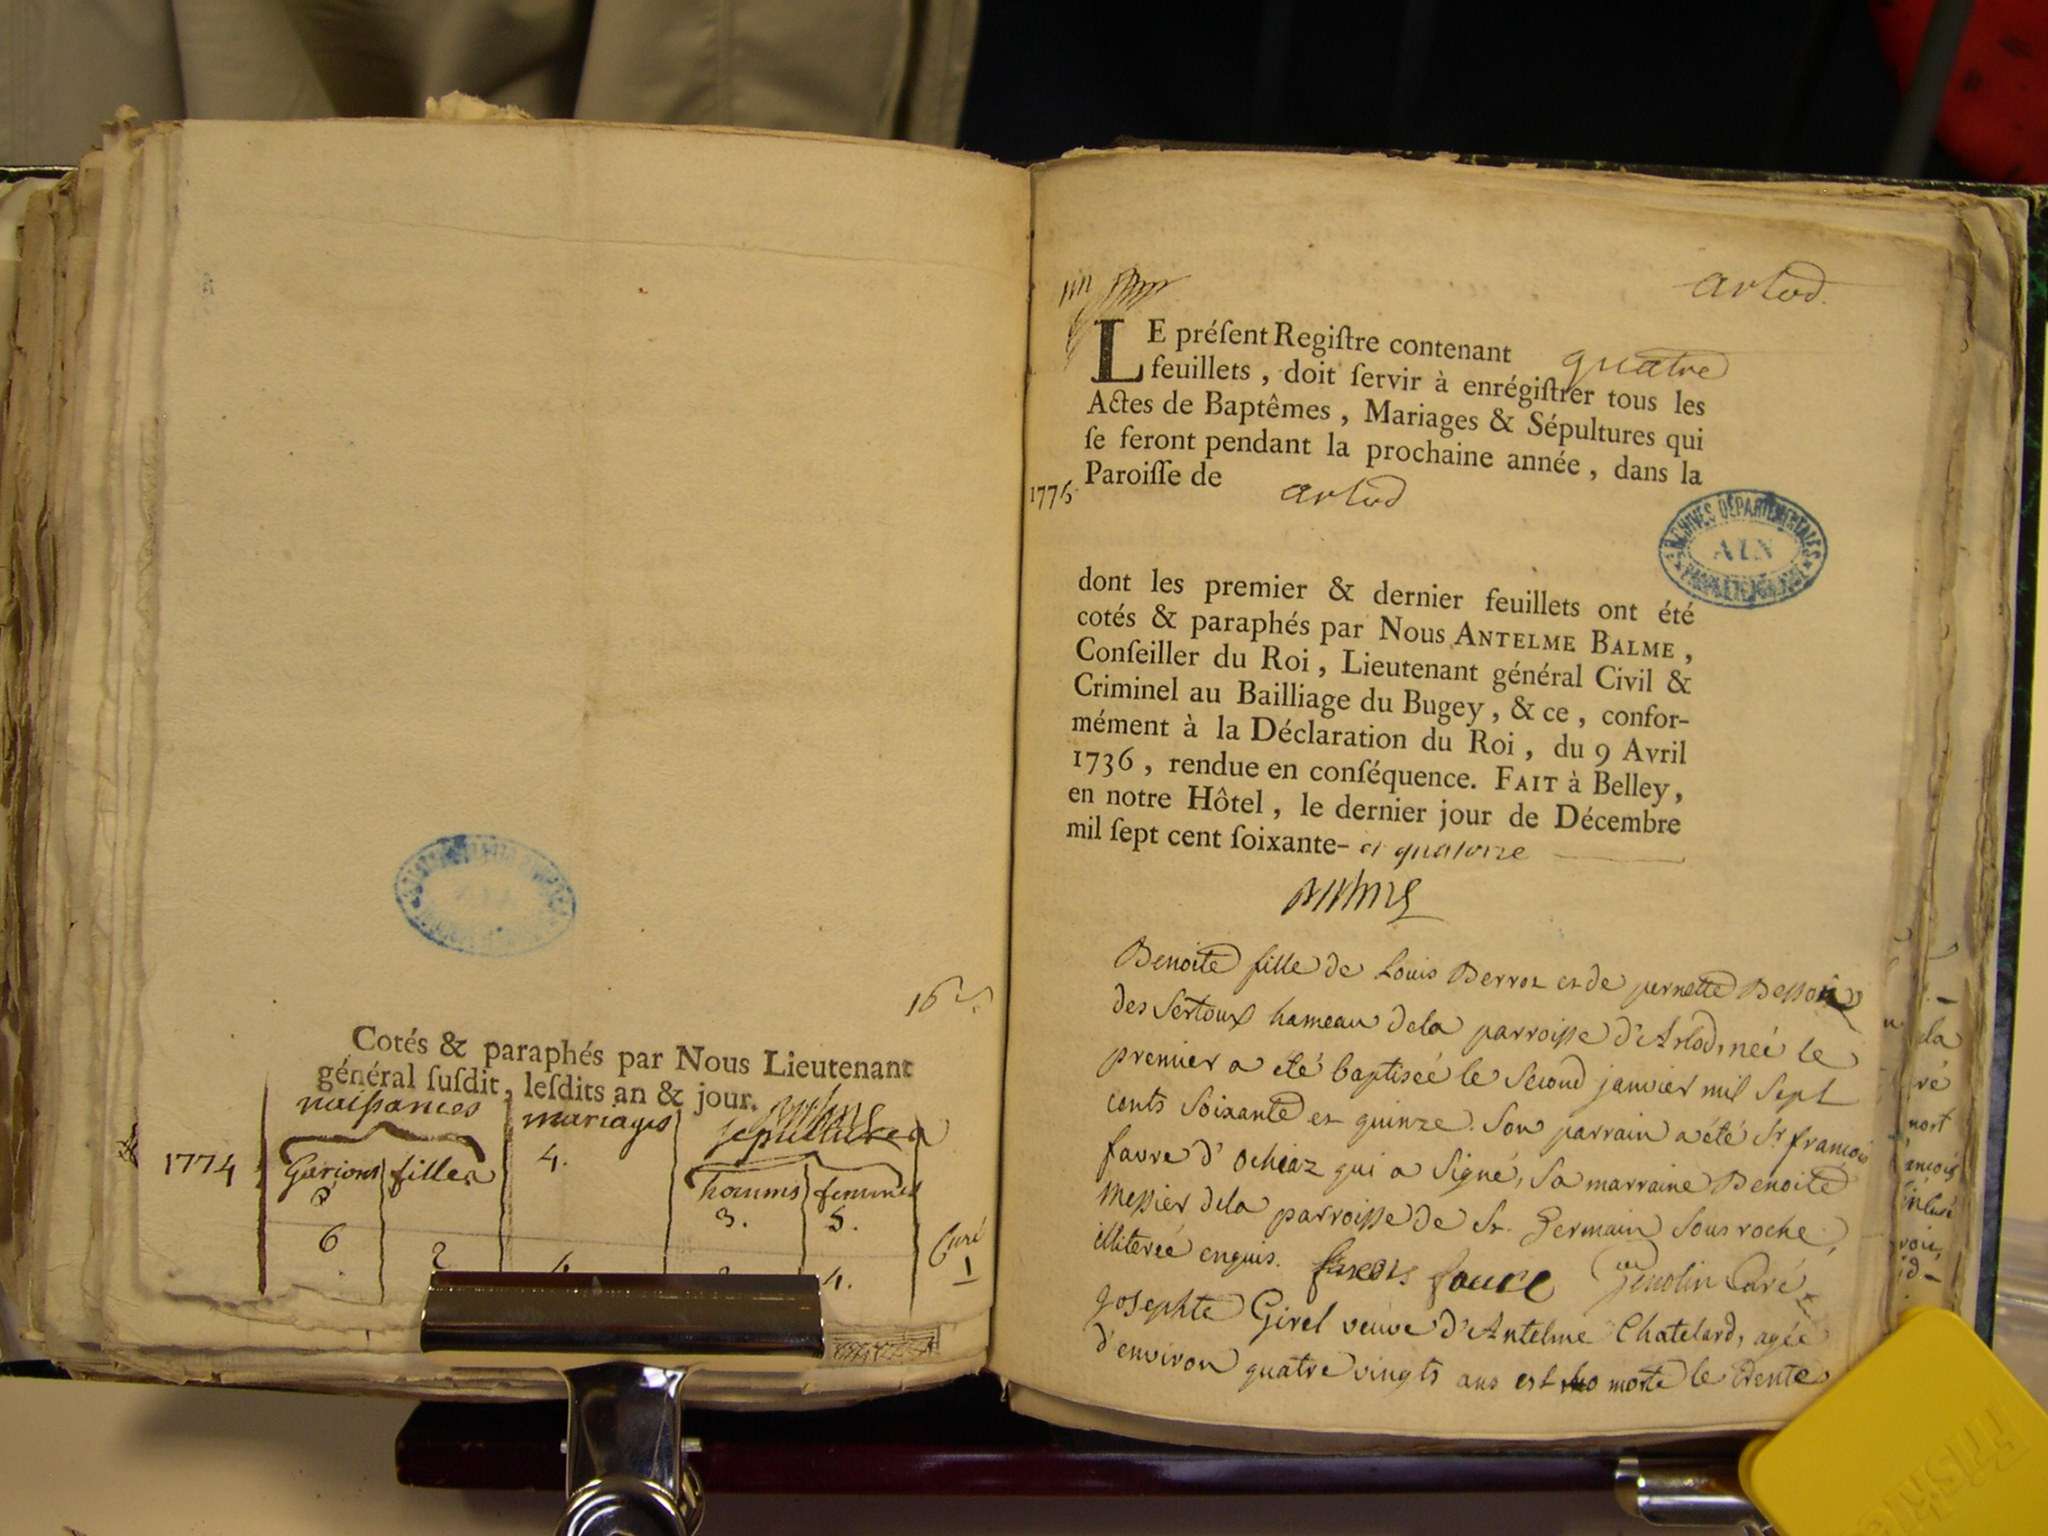 Cotés & paraphés par Nous Lieutenant
général suſdit, leſdits an & jour.
naissances mariages sepultures
1774 Garçons filles 4. hommes femmes
3. 5.
6 2 4.
Curé
1
arlod.
LE préſent Regiſtre contenant quatre
feuillets, doit ſervir à enrégiſtrer tous les
Actes de Baptêmes, Mariages & Sépultures qui
ſe feront pendant la prochaine année, dans la
Paroiſſe de arlod
1775.
ARCHIVES DÉPARTEMENTALES
AIN
dont les premier & dernier feuillets ont été
cotés & paraphés par Nous ANTELME BALME,
Conſeiller du Roi, Lieutenant général Civil &
Criminel au Bailliage du Bugey, & ce, confor-
mément à la Déclaration du Roi, du 9 Avril
1736, rendue en conſéquence. FAIT à Belley,
en notre Hôtel, le dernier jour de Décembre
mil ſept cent ſoixante- et quatorze
Benoite fille de Louis Berroz et de pernette
des Sertoux hameau dela parroisse d'Arlod, neé le
premier a eté baptiseé le Second janvier mil Sept
cents Soixante et quinze. Son parrain a été Sr. françois
favre d'ochiaz qui a Signé, Sa marraine Benoite
Messier dela parroisse de St. Germain Sous roche,
illitereé enquis. favre Genolin Curé
Josephte Girel veuve d'Antelme Chatelard, ageé
d'environ quatre vingts ans est morte le trente